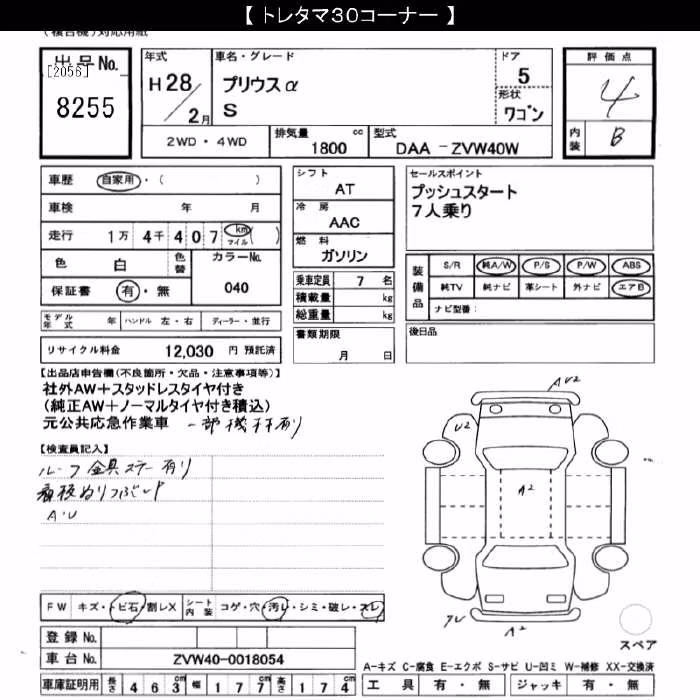 【 トレタマ30コーナー 】
(複合機)対応用紙
出品No.
[2056]
8255
年式
H 28 / 2月
車名・グレード
プリウスα
S
ドア
5
形状
ワゴン
評価点
4
内装
B
2WD ・ 4WD
排気量 cc
1800
型式
DAA - ZVW40W
車歴 自家用 ・ ( )
車検 年 月
走行 1万 4千 4 0 7 km マイル ( )
色 白 色替 カラーNo.
保証書 有 ・ 無 040
シフト
AT
冷房
AAC
燃料
ガソリン
乗車定員 7 名
積載量 kg
総重量 kg
書類期限
月 日
セールスポイント
プッシュスタート
7人乗り
装備品
S/R 純A/W P/S P/W ABS
純TV 純ナビ 革シート 外ナビ エアB
ナビ型番:
後日品
モデル年式 年 ハンドル 左・右 ディーラー・並行
リサイクル料金 12,030 円 預託済
【出品店申告欄(不良箇所・欠品・注意事項等)】
社外AW+スタッドレスタイヤ付き
(純正AW+ノーマルタイヤ付き積込)
元公共応急作業車 一部機材有り
【検査員記入】
ルーフ 金具ステー有り
看板ぬりつぶし
A・U
AU2
U2
A2
A2
FW キズ・トビ石・割レX シート内装 コゲ・穴・汚レ・シミ・破レ・スレ
登録No.
車台No. ZVW40-0018054
スペア
A-キズ C-腐食 E-エクボ S-サビ U-凹ミ W-補修 XX-交換済
車庫証明用 長さ 4 6 3 cm 幅 1 7 7 cm 高さ 1 7 4 cm
工具 有 ・ 無 ジャッキ 有 ・ 無